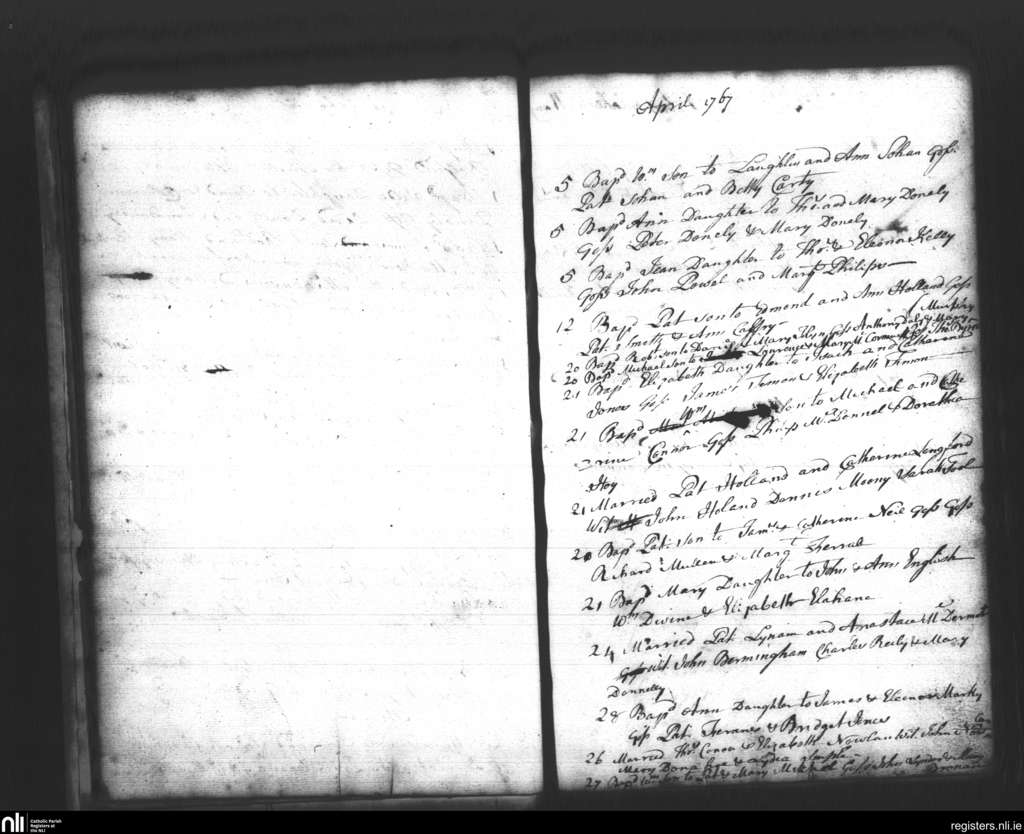 April 1767
5 Bapd Wm Son to Laughlin and Ann Sohan Goss:
Patk Sohan and Betty Carty
5 Bapd Ann Daughter to Thos and Mary Donely
Goss Peter Donely & Mary Donely
5 Bapd Jean Daughter to Thos & Eleonor Kelly
Goss John Powel and Margt Philips
12 Bapd Pat Son to Edmond and Ann Holland Goss
Pat: Smith & Ann Caffry
20 Bapd Son to & Mary Goss Anthony Daly & Mary
20 Bapd Michael Son to Laurence &
21 Bapd Elizabeth Daughter to and Catharine
Conor Goss James & Elizabeth
21 Bapd Wm Son to Michael and Cathe
rine Connor Goss Philip McDonnel & Dorathia
Hoy
21 Married Pat Holland and Catherine Longford
Wit John Holand Dennis Moony & Sarah
20 Bapd Pat: Son to Jams & Catherine Neil Goss Goss
Richard Mullen & Margt Ferral
21 Bapd Mary Daughter to John & Ann English
Wm Divine & Elizabeth
24 Married Pat Lynam and Anastace McDermot
Wit John Bermingham Charles Reily & Mary
Donnelly
28 Bapd Ann Daughter to James & Eleonor Marky
Goss Pat. & Bridget
26 Married Thos Conor & Elizabeth Nowlan Wit. John
Mary &
27 Bapd Son to & Mary Goss John &
nli
Catholic Parish
Registers at
the NLI
registers.nli.ie